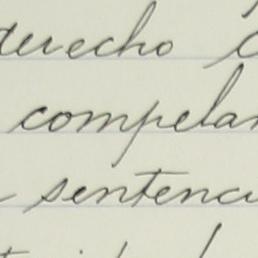 derecho
compelan
sentenci